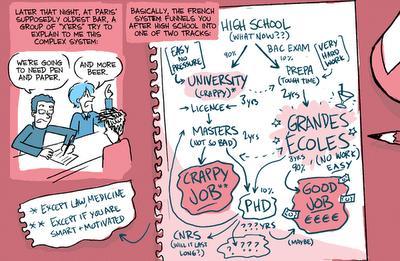 LATER THAT NIGHT, AT PARIS'
SUPPOSEDLY OLDEST BAR, A
GROUP OF "X'ERS" TRY TO
EXPLAIN TO ME THIS
COMPLEX SYSTEM:
WE'RE GOING
TO NEED PEN AND
PAPER.
AND MORE
BEER.
BASICALLY, THE FRENCH
SYSTEM FUNNELS YOU
AFTER HIGH SCHOOL INTO
ONE OF TWO TRACKS:
HIGH SCHOOL
(WHAT NOW??)
EASY
NO
PRESSURE
90%
BAC EXAM
10%
VERY
HARD
WORK
UNIVERSITY
(CRAPPY)*
PREPA
(TOUGH TIME)
LICENCE
3yrs
2yrs
MASTERS
(NOT SO BAD)
2yrs
GRANDES
ÉCOLES
3yrs
(NO WORK)
90%
EASY
CRAPPY
JOB**
10%
PHD
GOOD
JOB
€€€€
???yrs
CNRS
(WILL IT LAST
LONG?)
? ? ?
(MAYBE)
* EXCEPT LAW, MEDICINE
** EXCEPT IF YOU ARE
SMART + MOTIVATED